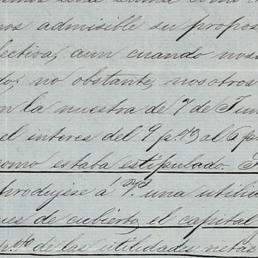 mos admisible su propos
lectiva, aun cuando noso
do, no obstante, nosotros
en la nuestra de 7 de Jun
el interes del 9 p.% al 6 p
como estaba estipulado.
produjese á V. una utilid
ues de cubierto, el capital
p.% de las utilidades netas